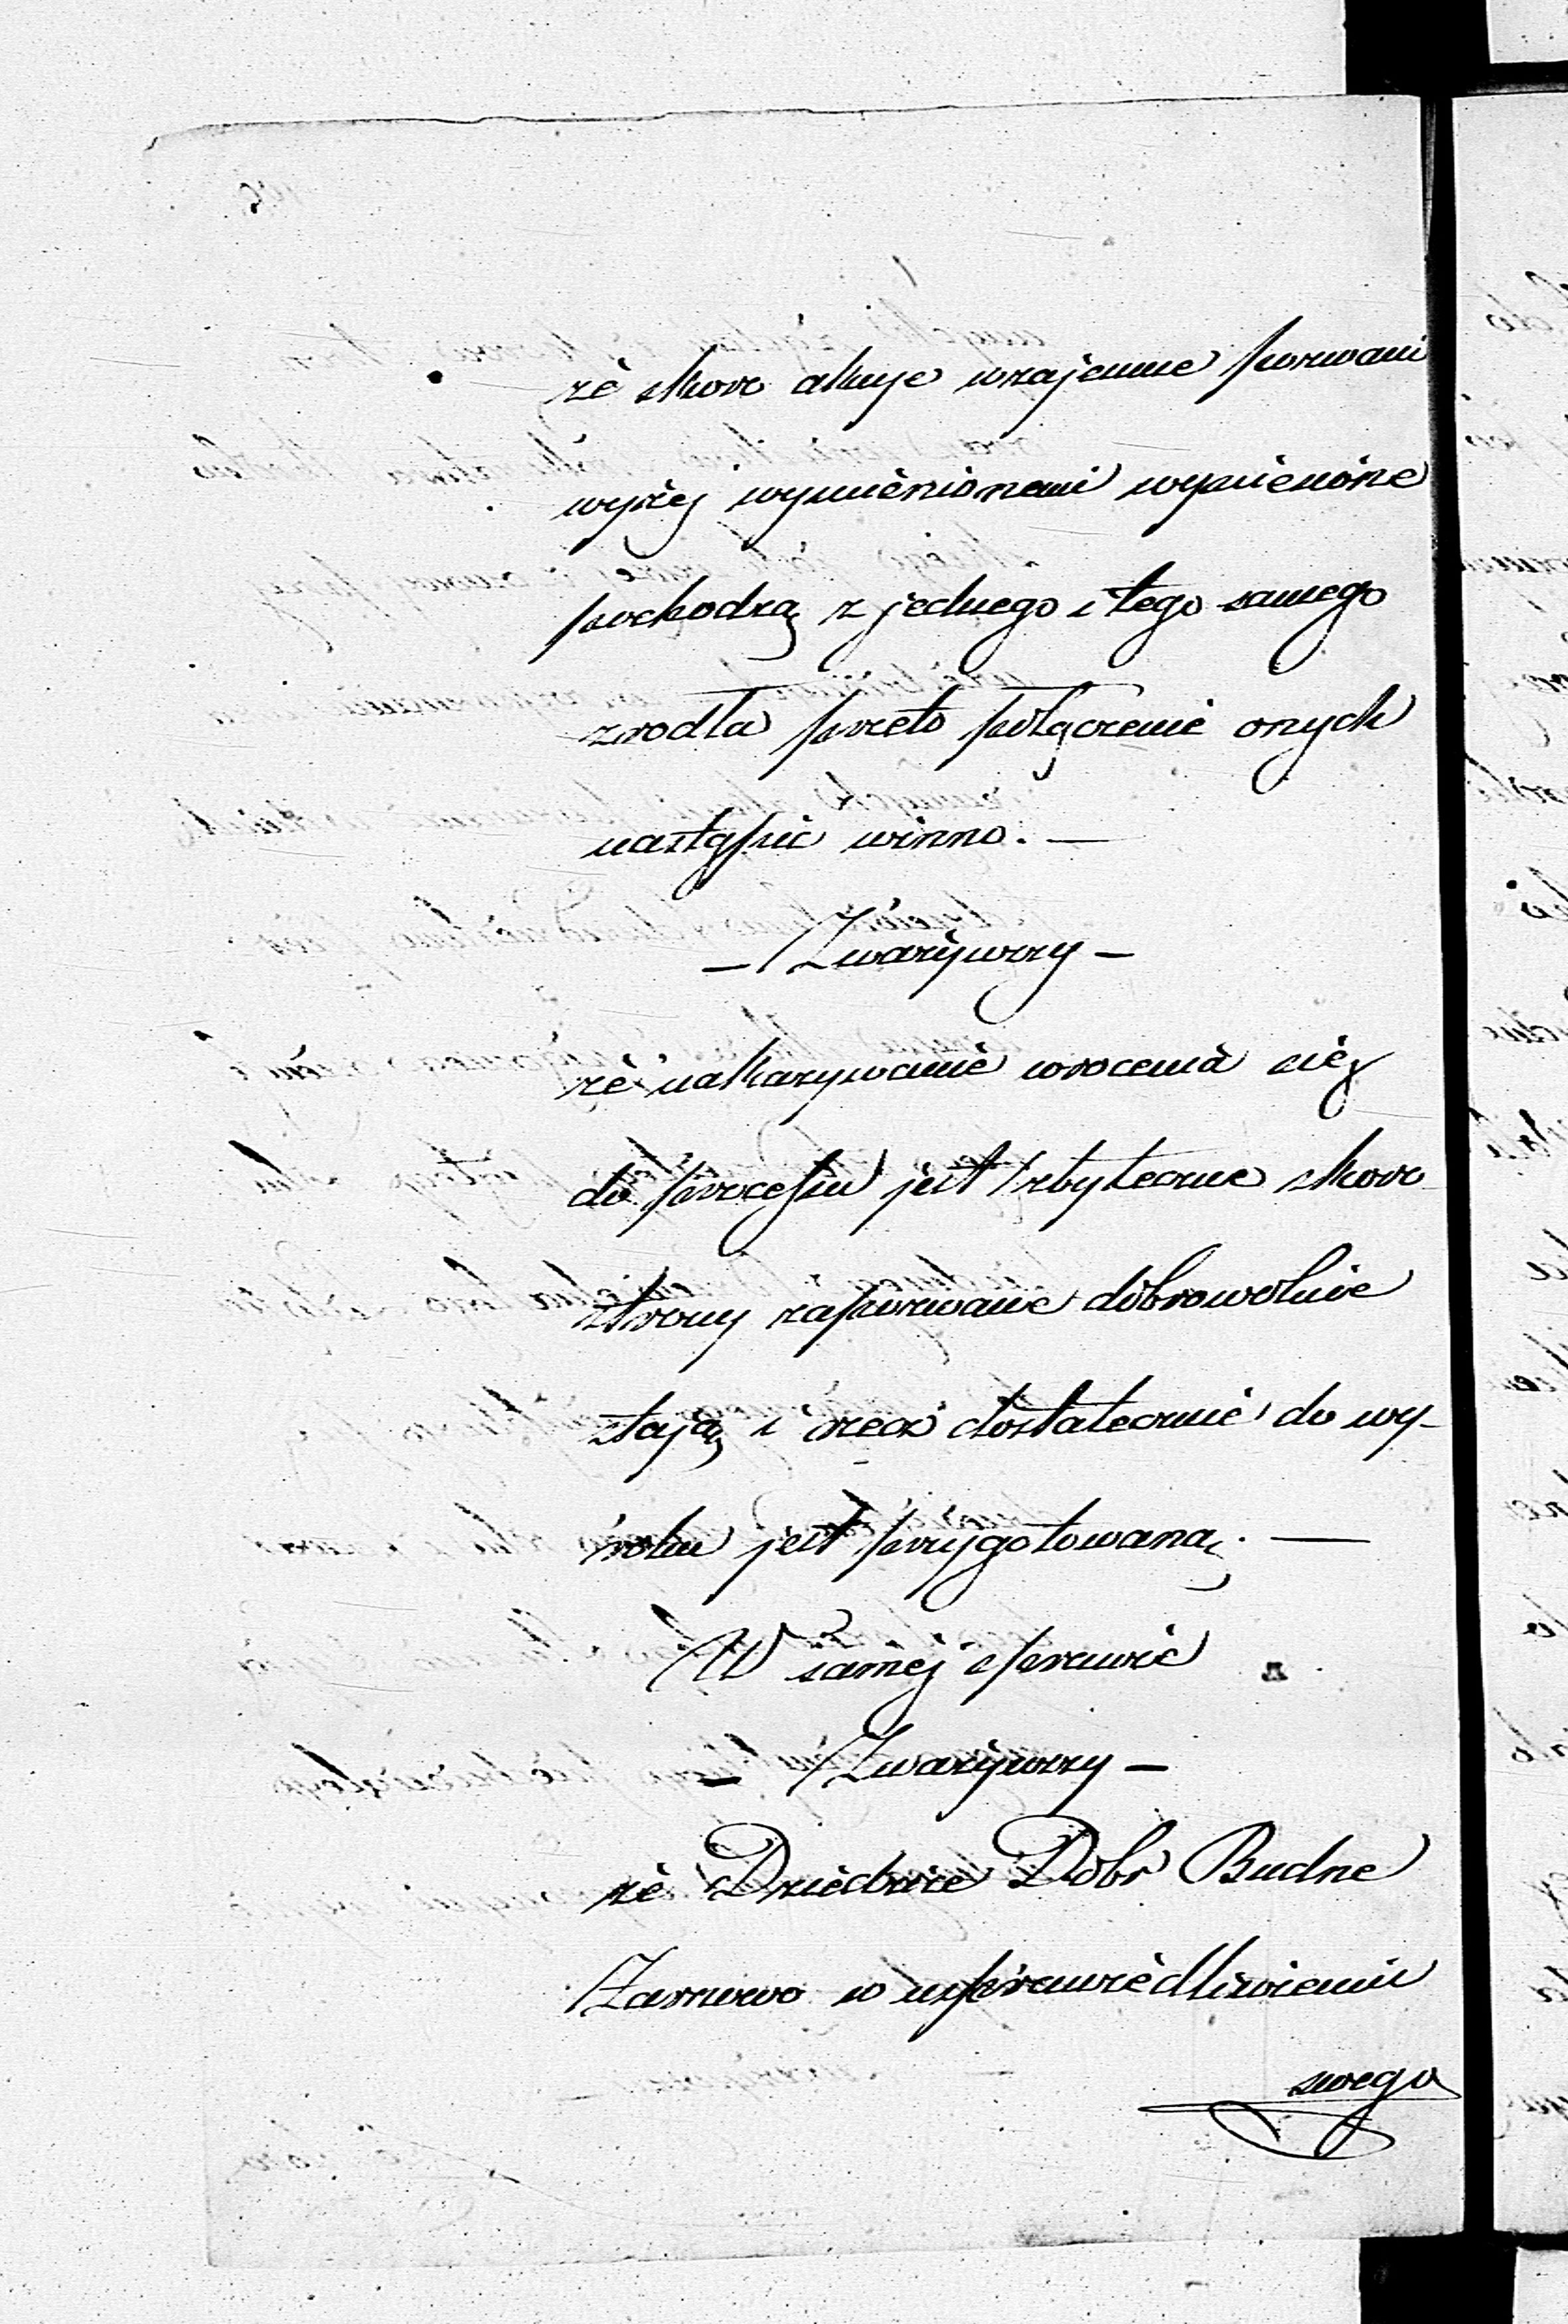 że skoro akcye wzajemne pozwami
wyżej wymienionemi wymienione
pochodzą z jednego i tego samego
zrodła przeto połączenie onych
nastąpić winno. —
— Zważywszy —
że nakazywanie wrocenia się
do processu jest zbyteczne skoro
strony zapozwane dobrowolnie
stają i rzecz dostatecznie do wy-
roku jest przygotowaną. —
W samej sprawie
— Zważywszy —
że Dziedzice Dobr Budne
Żarnowo w usprawiedliwieniu
swego